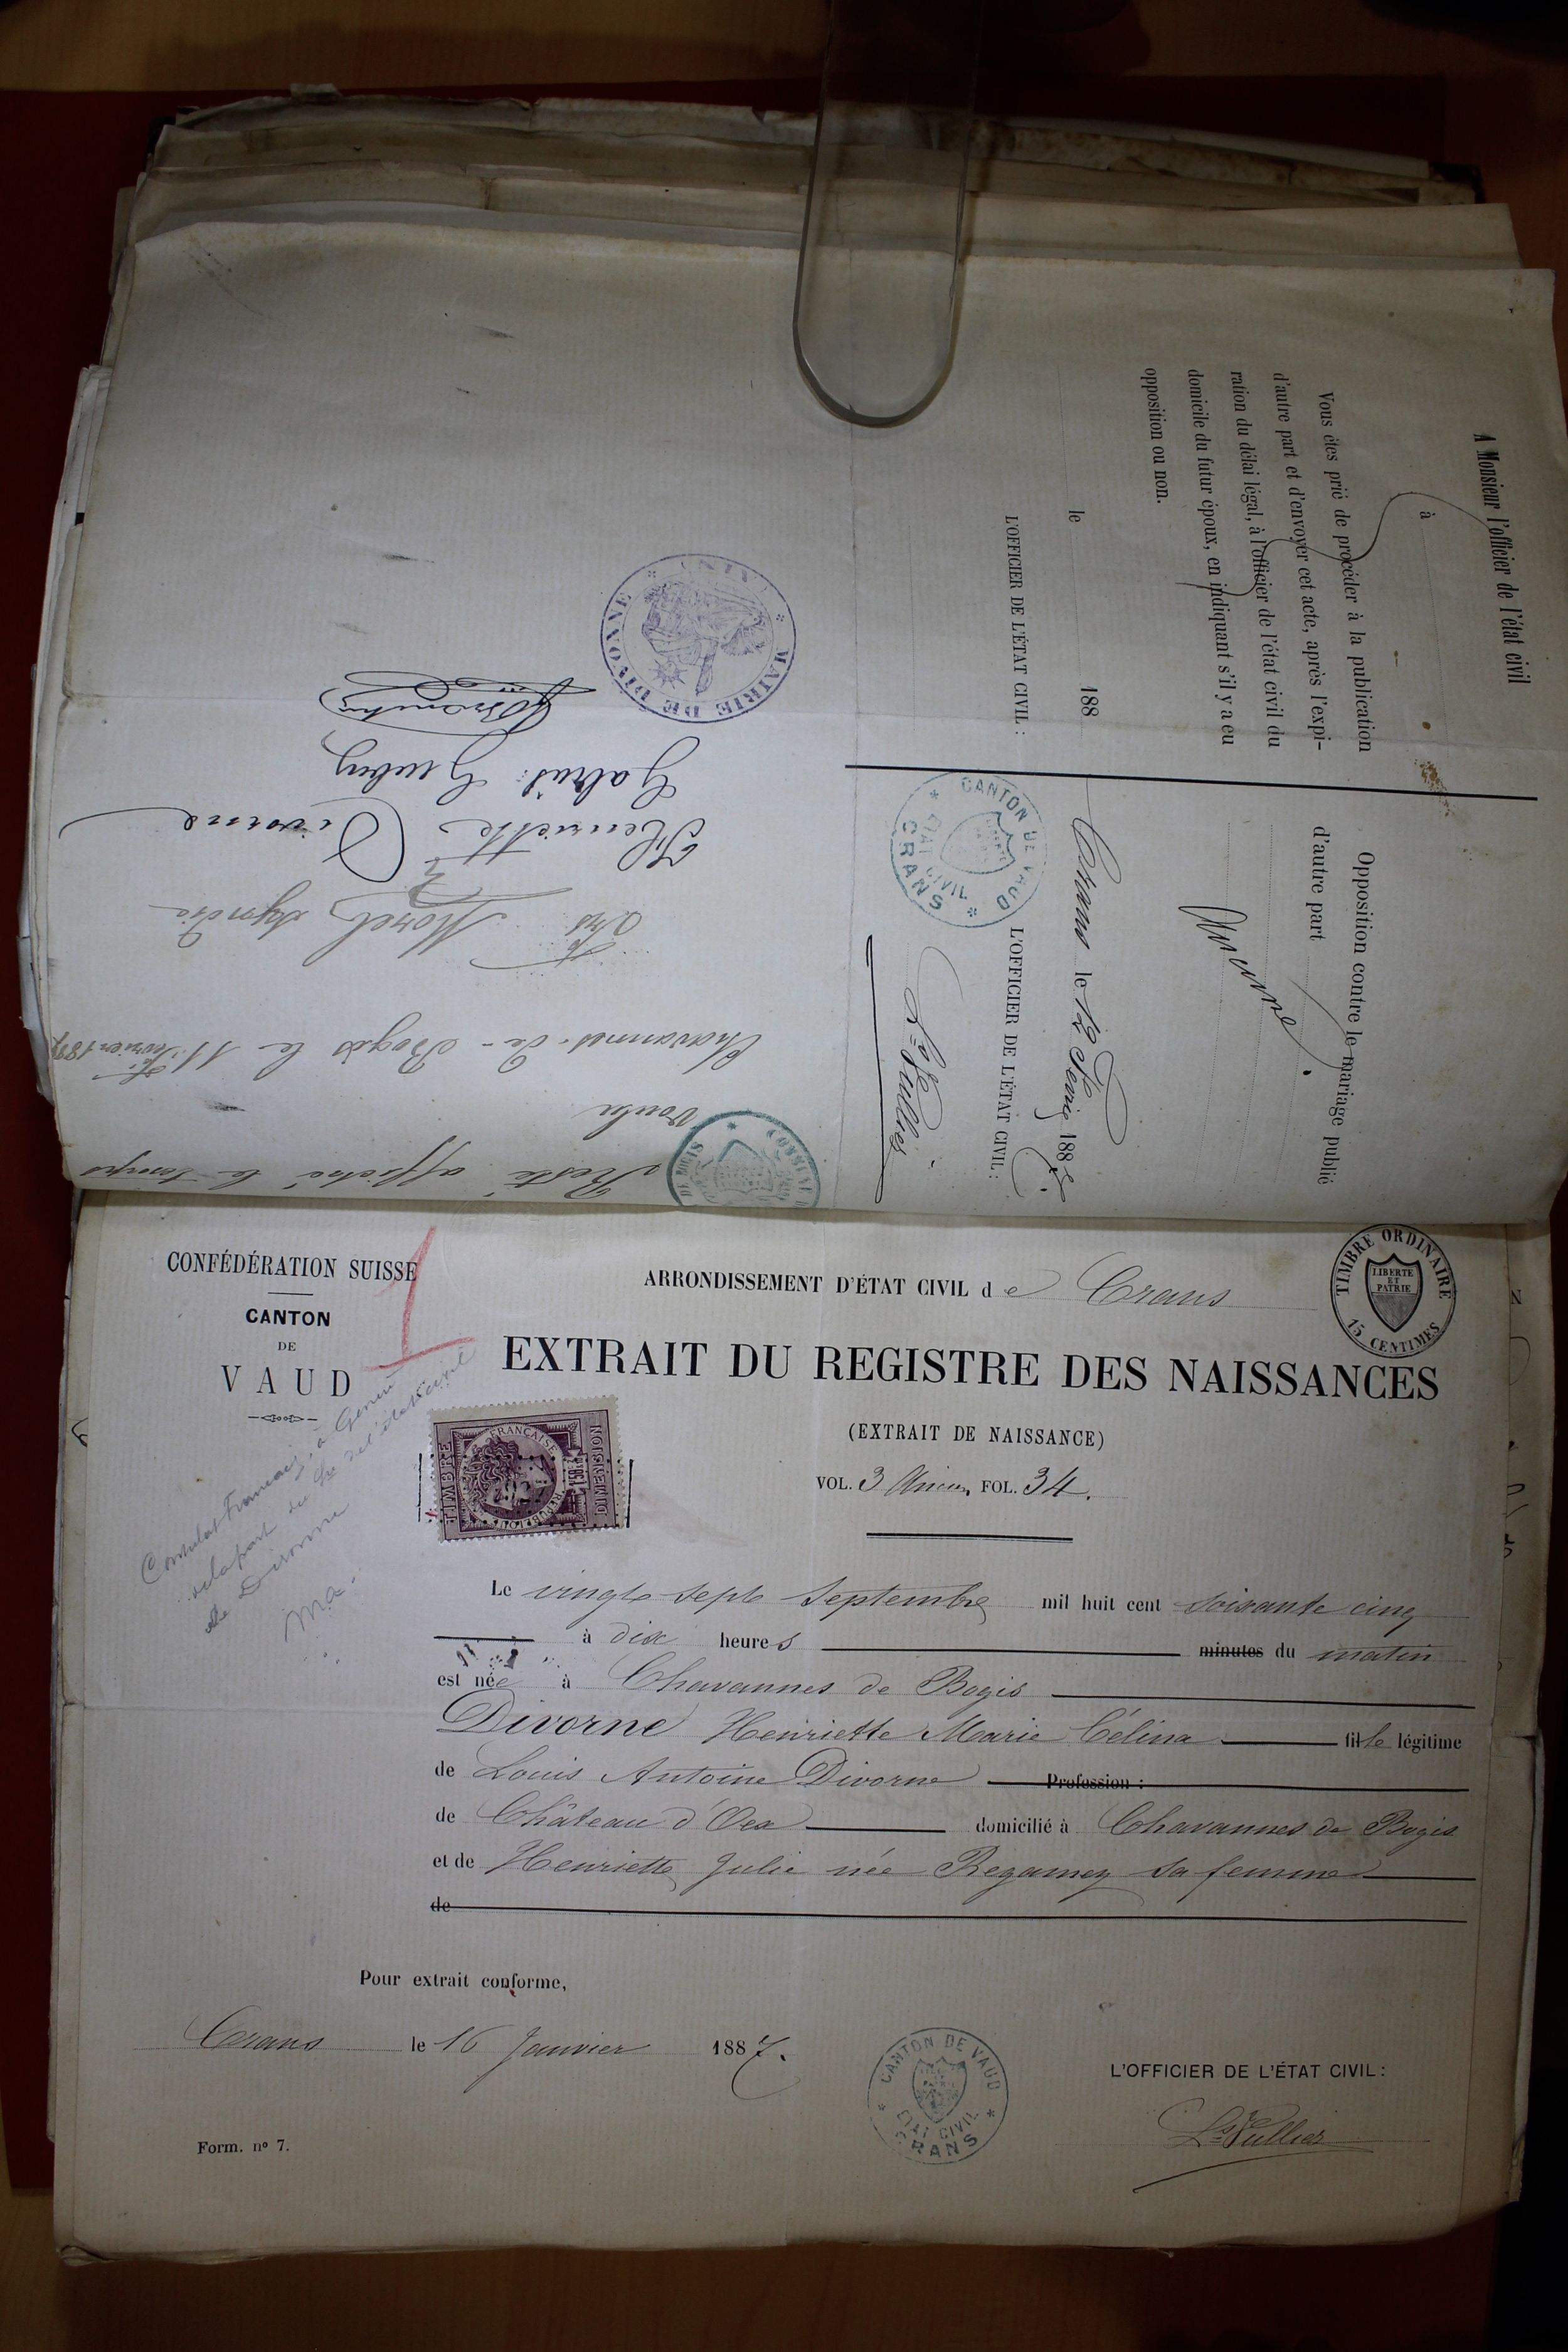 A Monsieur l'officier de l'état civil
à
Vous êtes prié de procéder à la publication
d'autre part et d'envoyer cet acte, après l'expi-
ration du délai légal, à l'officier de l'état civil du
domicile du futur époux, en indiquant s'il y a eu
opposition ou non.
le 188
L'OFFICIER DE L'ÉTAT CIVIL :
Opposition contre le mariage publié
d'autre part
aucune
Crans le 12 Février 1887.
L'OFFICIER DE L'ÉTAT CIVIL :
Ls Vullier
CANTON DE VAUD
ETAT CIVIL
CRANS
Resté affiché le temps
voulu
Chavannes-de-Bogis le 11 février 1887
Morel syndic
Henriette Divorne
Gabriel
MAIRIE DE DIVONNE
CONFÉDÉRATION SUISSE
CANTON
DE
VAUD
ARRONDISSEMENT D'ÉTAT CIVIL de Crans
TIMBRE ORDINAIRE
LIBERTE
ET
PATRIE
15 CENTIMES
EXTRAIT DU REGISTRE DES NAISSANCES
(EXTRAIT DE NAISSANCE)
VOL. 3 FOL. 34.
TIMBRE
DIMENSION
REPUBLIQUE FRANÇAISE
Consulat Français, à Genève
de la part du de l'état civil
de Divonne
Le vingt sept Septembre mil huit cent soixante cinq
à dix heures minutes du matin
est née à Chavannes de Bogis
Divorne Henriette Marie Célina fille légitime
de Louis Antoine Divorne Profession :
de Château d'Oex domicilié à Chavannes de Bogis
et de Henriette Julie née Regamey sa femme
de
Pour extrait conforme,
Crans le 16 Janvier 1887.
CANTON DE VAUD
ETAT CIVIL
CRANS
L'OFFICIER DE L'ÉTAT CIVIL :
Ls Vullier
Form. nº 7.